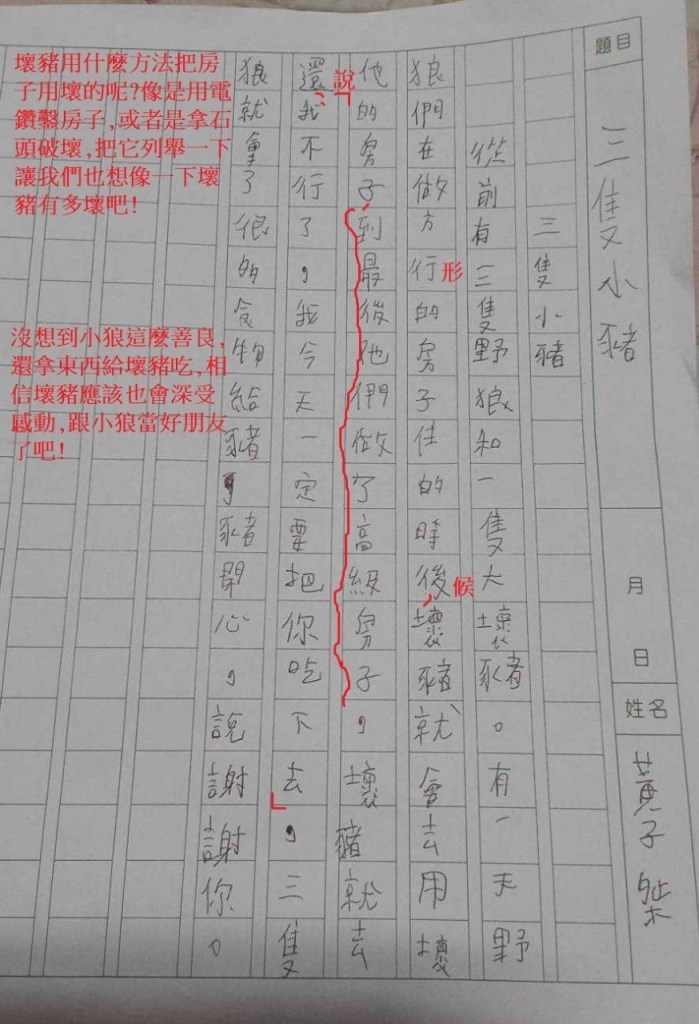 題目
三隻小豬
月
日
姓名
黃子
三隻小豬
從前有三隻野狼和一隻大壞豬。有一天野
狼們在做方行的房子佳的時後壞豬就會去用壞
形
候
他的房子到最後他們做了高級房子，壞豬就去
說「
還我不行了，我今天一定要把你吃下去，三隻
」
狼就拿了很的食物給豬，豬開心，說謝謝你。
壞豬用什麼方法把房
子用壞的呢?像是用電
鑽鑿房子,或者是拿石
頭破壞,把它列舉一下
讓我們也想像一下壞
豬有多壞吧!
沒想到小狼這麼善良,
還拿東西給壞豬吃,相
信壞豬應該也會深受
感動,跟小狼當好朋友
了吧!